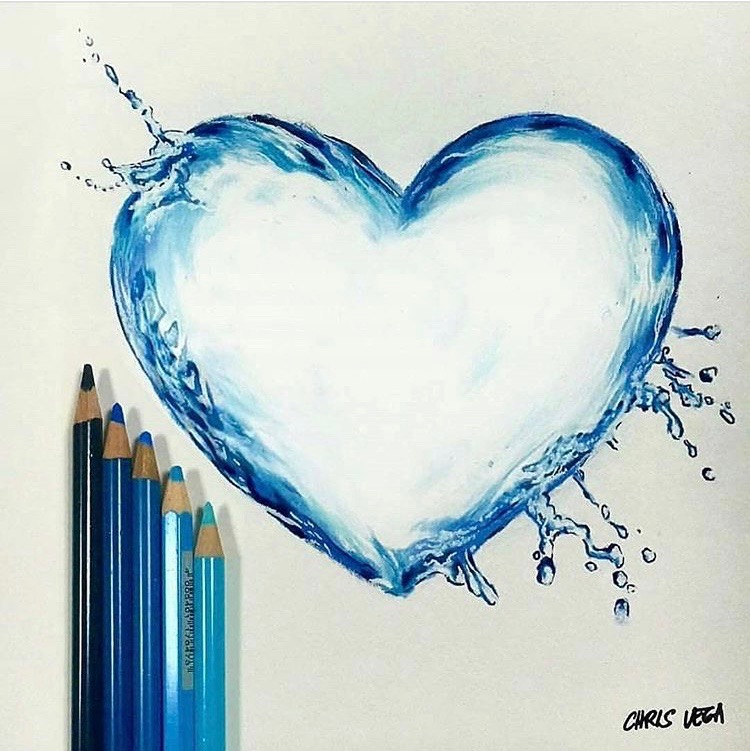 CHRIS VEGA